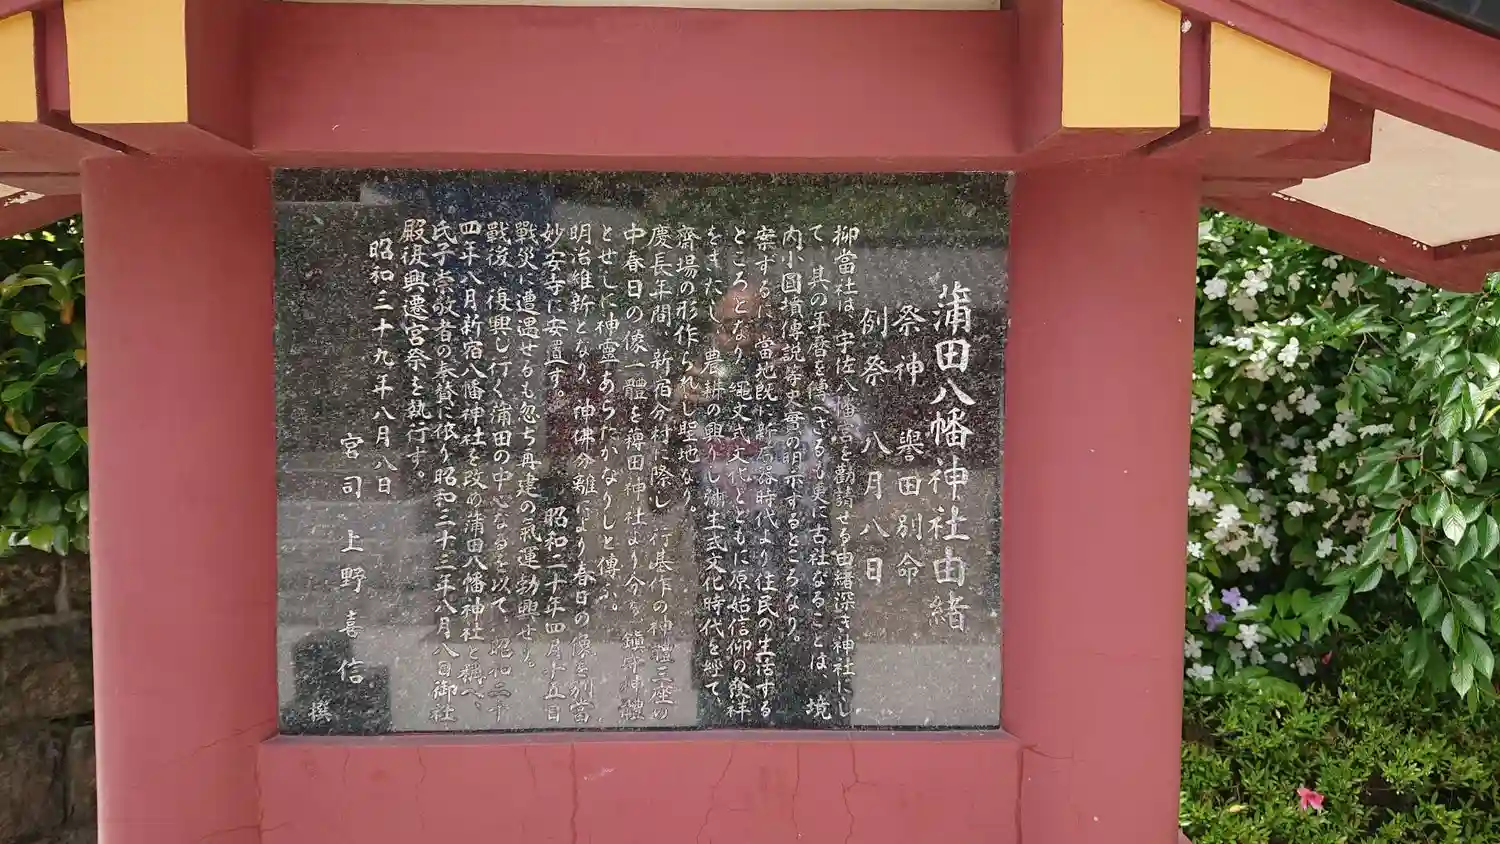 蒲田八幡神社由緒
祭神　譽田別命
例祭　八月八日
抑當社は、宇佐八幡宮を勸請せる由緒深き神社にし
て、其の年暦を傳へざるも更に古社なることは、境
内小圓墳傳説等史實の明示するところなり。
案ずるに、當地既に新石器時代より住民の生活する
ところとなり、縄文式文化とともに原始信仰の發祥
をきたし、農耕の興りし弥生式文化時代を經て、
齋場の形作られし聖地なり。
慶長年間、新宿分村に際し、行基作の神體三座の
中春日の像一體を稗田神社より分ち、鎮守神體
とせしに神靈あらたかなりしと傳ふ。
明治維新となり、神佛分離により春日の像を別當
妙安寺に安置す。　昭和二十年四月十五日
戰災に遭遇せるも忽ち再建の氣運勃興せり。
戰後、復興し行く蒲田の中心なるを以て、昭和二十
四年八月新宿八幡神社を改め蒲田八幡神社と稱へ、
氏子崇敬者の奉賛に依り昭和三十三年八月八日御社
殿復興遷宮祭を執行す。
昭和三十九年八月八日
宮司　上野喜信　撰